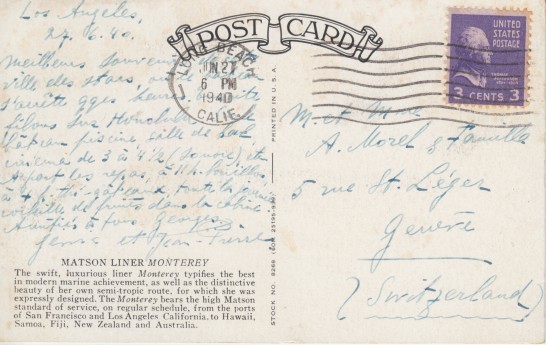 Los Angeles,
27.6.40.
Meilleurs souvenirs de la
ville des stars, où le
s'arrête qques heures.
filons sur Honolulu
bateau, piscine, salle de
cinéma de 3 à 4½ (sonore) et
départ les repas, à 11h. bouillon
à 4 p. thé-gâteaux, toute la journée
corbeille de fruits dans la cabine.
Amitiés à tous. Georges,
et Jean-Pierre
MATSON LINER MONTEREY
The swift, luxurious liner Monterey typifies the best
in modern marine achievement, as well as the distinctive
beauty of her own semi-tropic route, for which she was
expressly designed. The Monterey bears the high Matson
standard of service, on regular schedule, from the ports
of San Francisco and Los Angeles California, to Hawaii,
Samoa, Fiji, New Zealand and Australia.
POST CARD
LONG BEACH
JUN 27
6 PM
1940
CALIF.
PRINTED IN U.S.A.
STOCK NO. 8268
UNITED
STATES
POSTAGE
3 CENTS 3
M. et Mme
A. Morel & famille
5 rue St. Léger
Genève
(Switzerland)